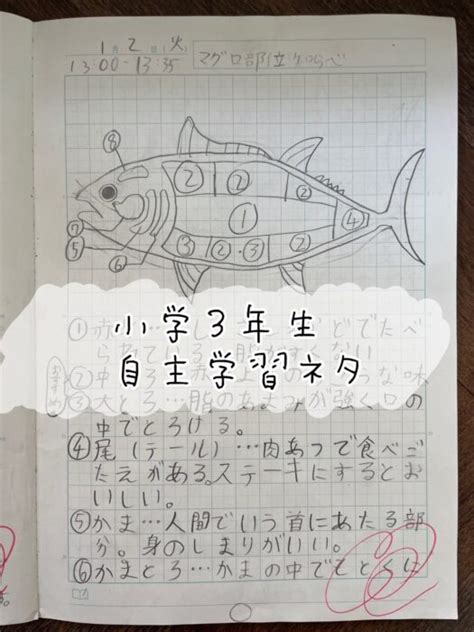 1月2日(火)
13:00-13:35
マグロ部位くらべ
⑧
② ② ②
①
④
③ ②・③ ②
⑦
⑤
⑥
小学3年生
自主学習ネタ
① 赤 どでたべ
ない
おすすめ
② 中とろ な味
③ 大とろ…脂のあまみが強く口の
中でとろける。
④尾(テール)…肉あつで食べご
たえがある。ステーキにするとお
いしい。
⑤かま…人間でいう首にあたる部
分。身のしまりがいい。
⑥かまとろ…かまの中でもとくに